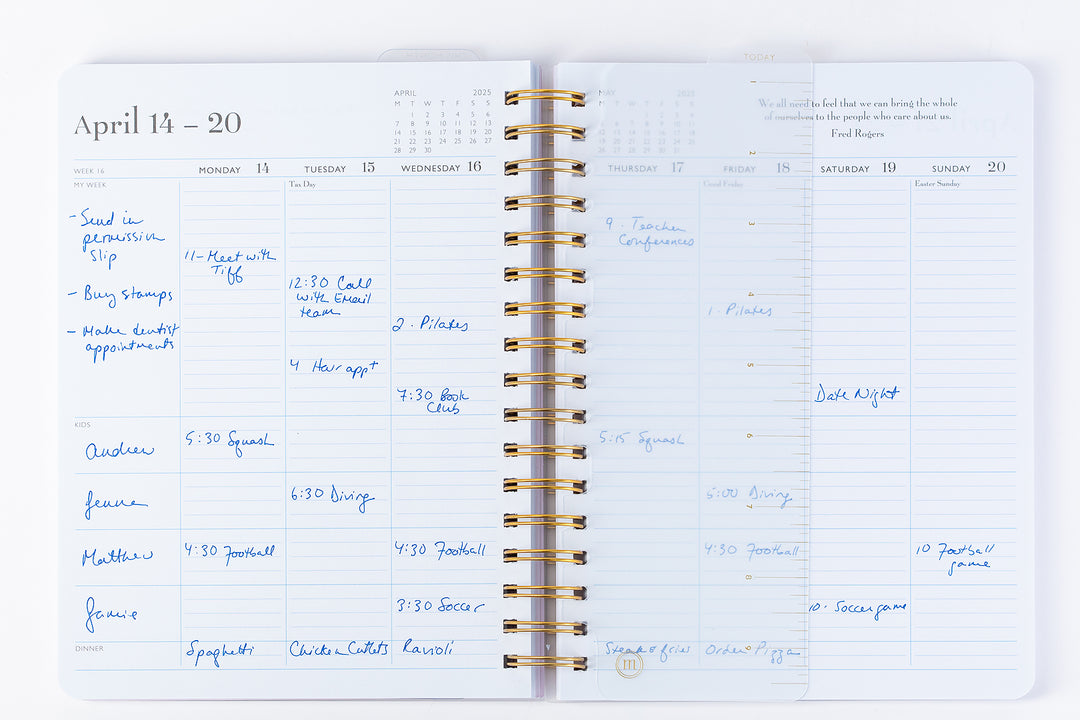 TODAY
April 14 – 20
APRIL 2025
M T W T F S S
1 2 3 4 5 6
7 8 9 10 11 12 13
14 15 16 17 18 19 20
21 22 23 24 25 26 27
28 29 30
MAY 2025
We all need to feel that we can bring the whole
of ourselves to the people who care about us.
Fred Rogers
WEEK 16
MONDAY 14
TUESDAY 15
WEDNESDAY 16
THURSDAY 17
FRIDAY 18
SATURDAY 19
SUNDAY 20
MY WEEK
Tax Day
Good Friday
Easter Sunday
- Send in
permission
slip
- Buy stamps
- Make dentist
appointments
11- Meet with
Tiff
12:30 Call
with Email
team
4 Hair appt
2 · Pilates
7:30 Book
Club
9 · Teacher
Conferences
1 · Pilates
Date Night
KIDS
Andrew
5:30 Squash
5:15 Squash
Jenna
6:30 Diving
5:00 Diving
Matthew
4:30 Football
4:30 Football
4:30 Football
10 Football
game
Jamie
3:30 Soccer
10 · Soccer game
DINNER
Spaghetti
Chicken Cutlets
Ravioli
Steak & fries
Order Pizza
1
2
3
4
5
6
7
8
9
m